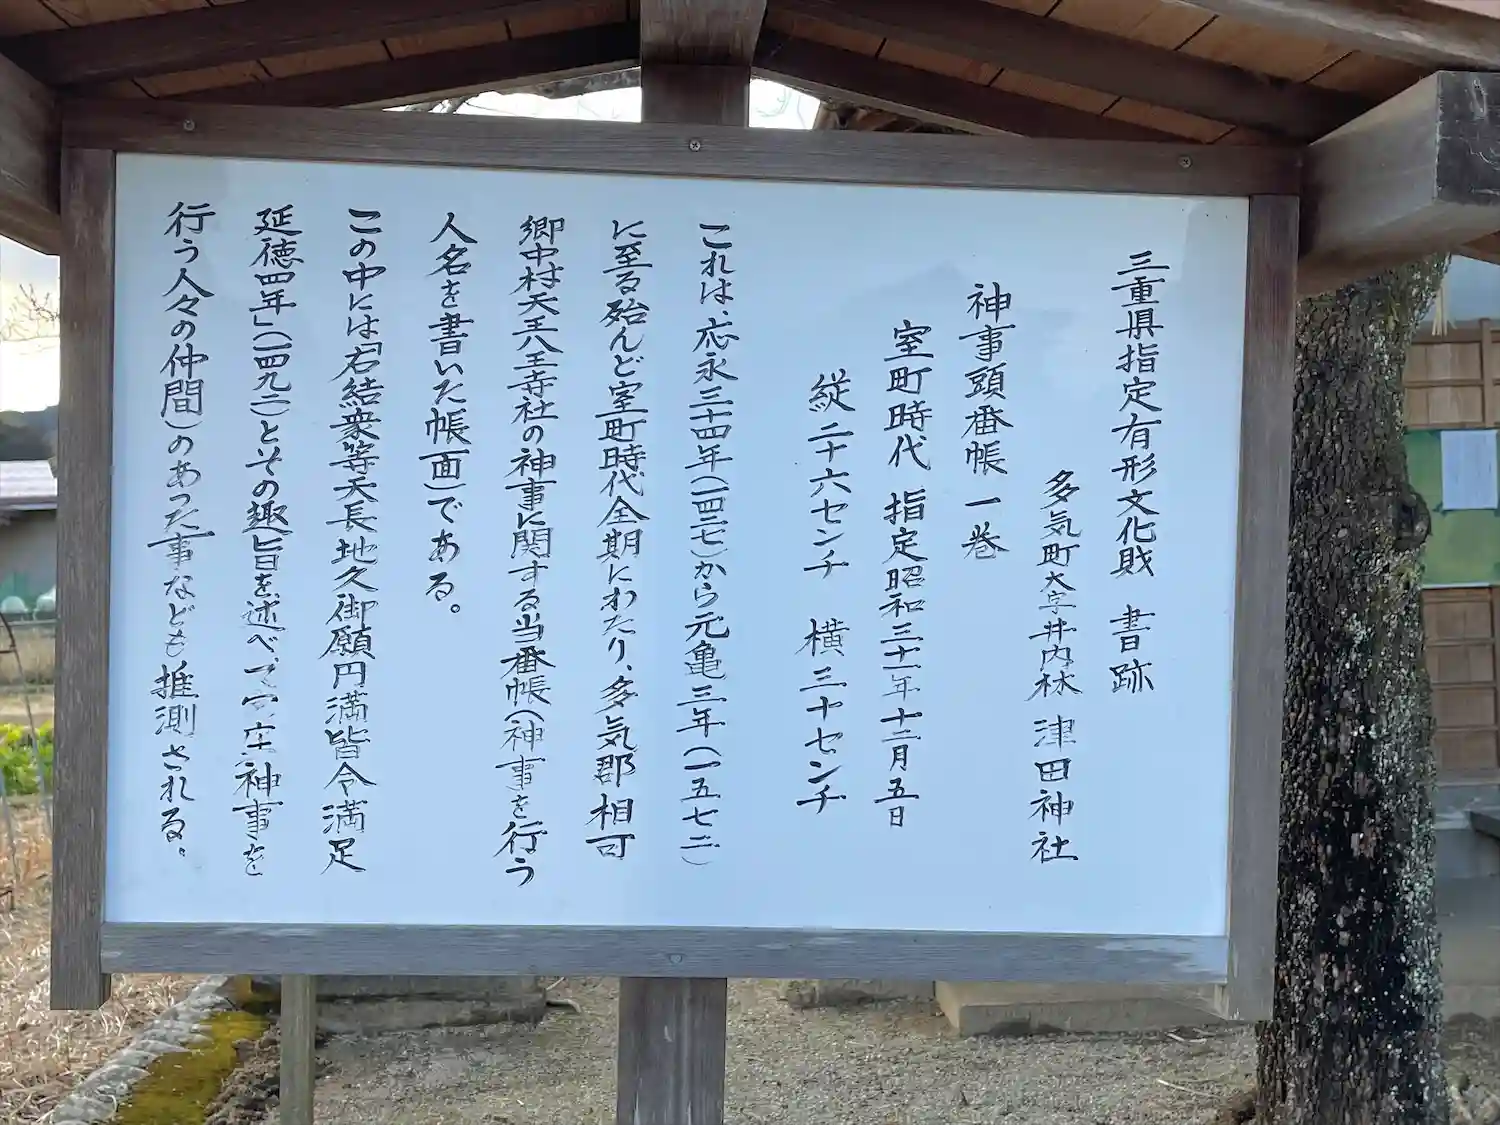 三重県指定有形文化財 書跡
多気町大字井内林 津田神社
神事頭番帳 一巻
室町時代 指定昭和三十一年十二月五日
縦 二十六センチ 横 三十センチ
これは、応永三十四年(一四二七)から元亀三年(一五七二)
に至る殆んど室町時代全期にわたり、多気郡相可
郷中村天王八王寺社の神事に関する当番帳(神事を行う
人名を書いた帳面)である。
この中には「右結衆等天長地久御願円満皆令満足
延徳四年」(一四九二)とその趣旨を述べ、神事を
行う人々の仲間)のあった事なども推測される。